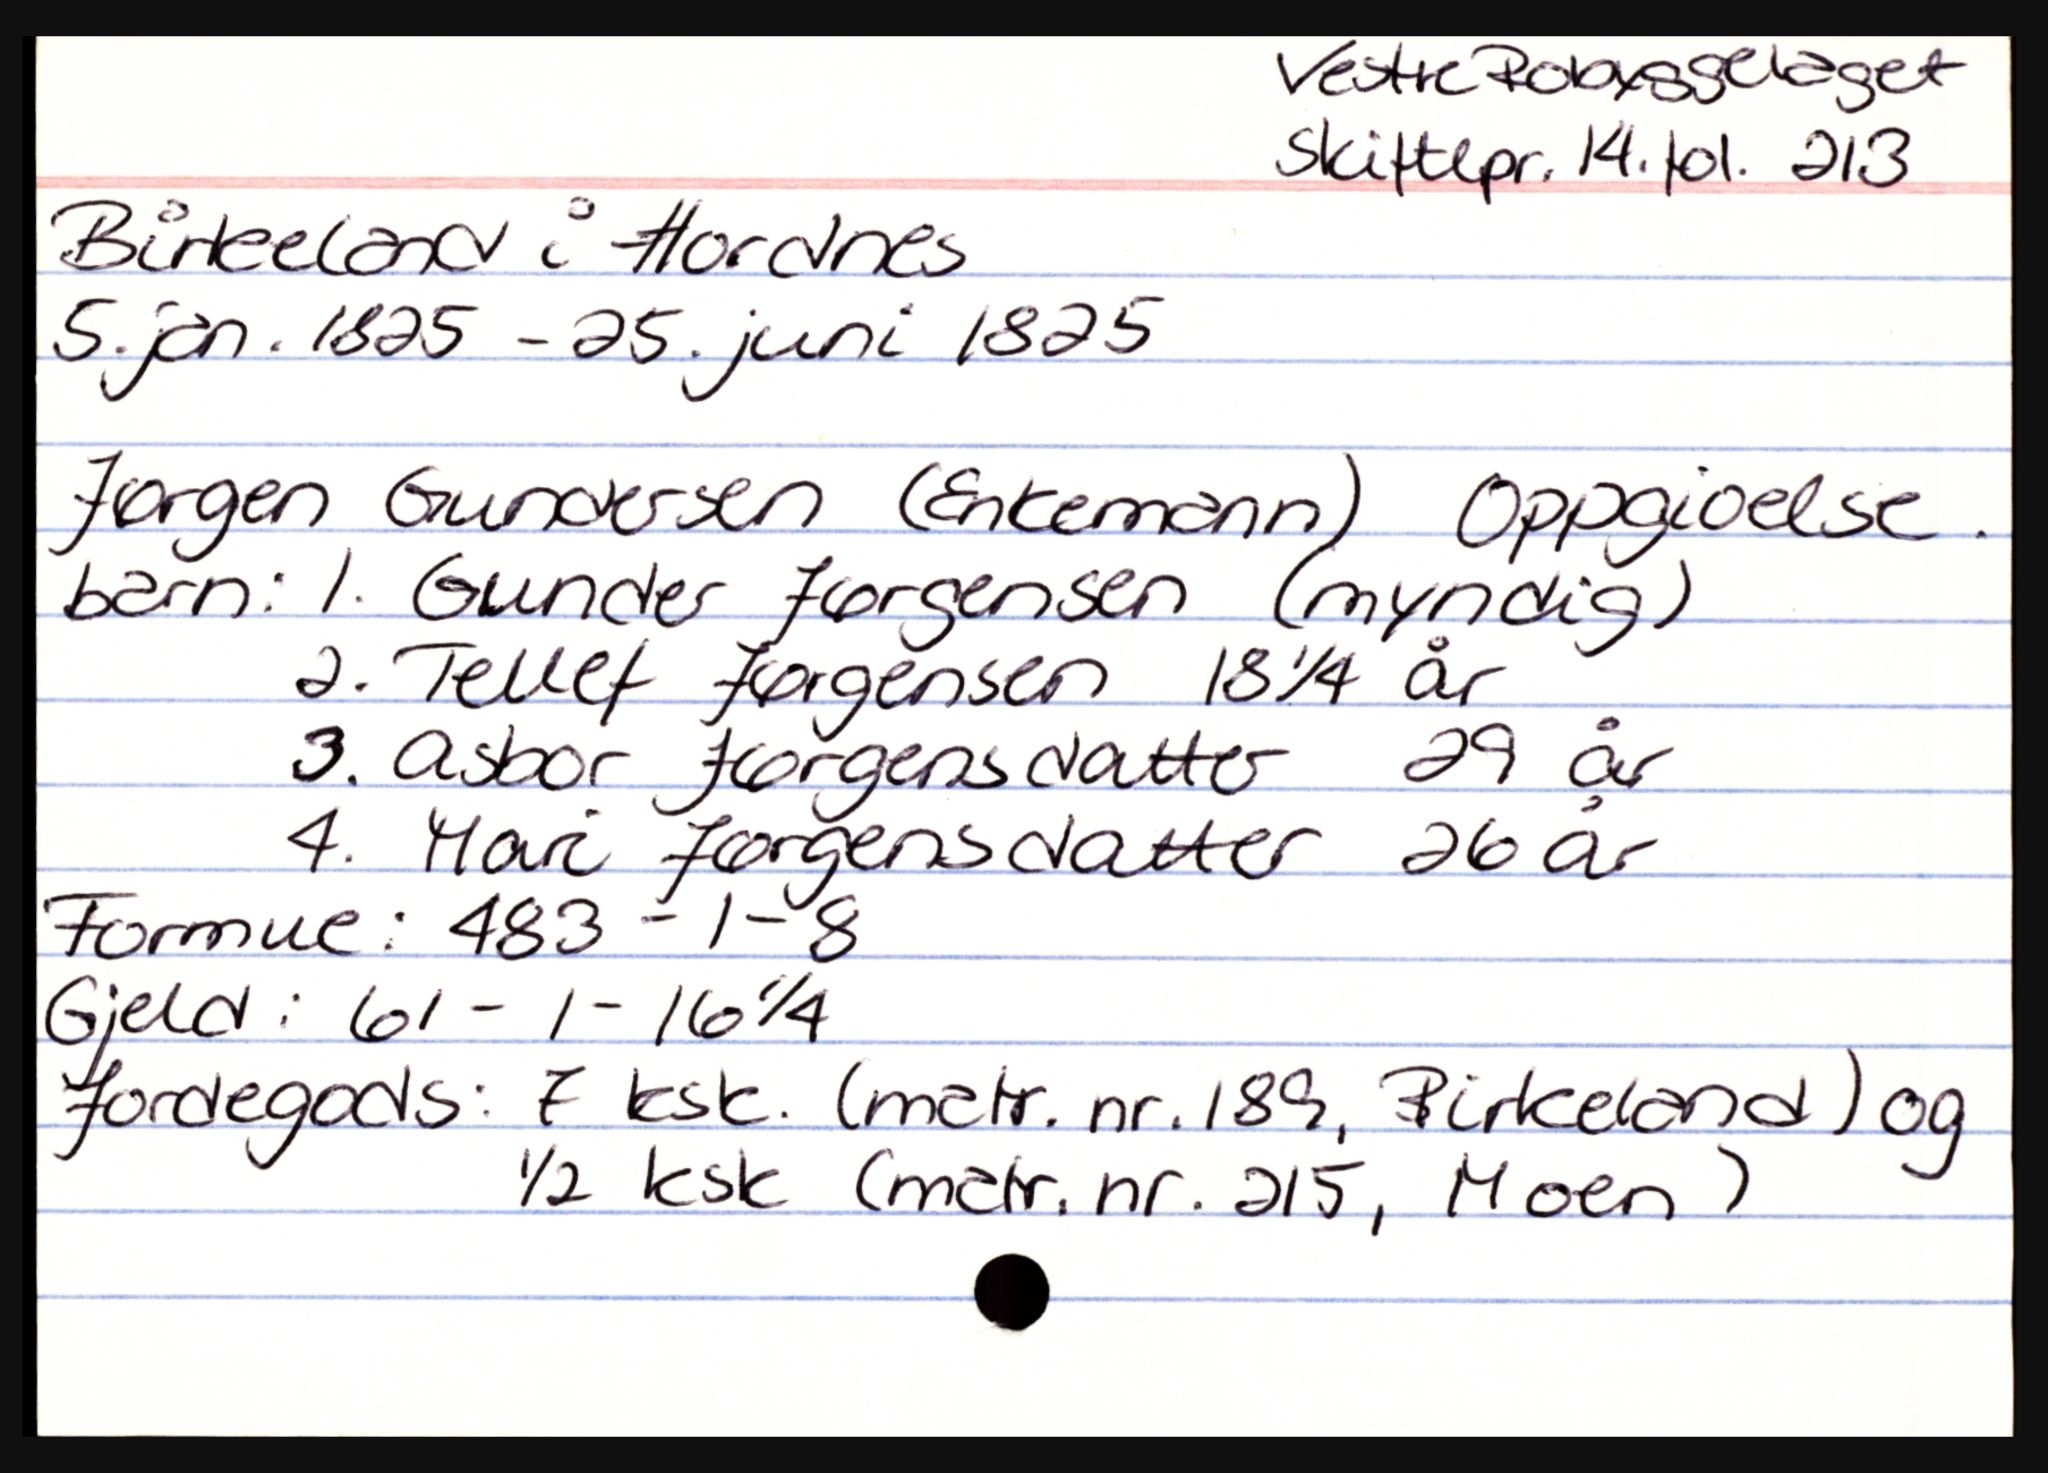 Vestre Robyggelaget
Skiftepr. 14. fol. 213
Birkeland i Hordnes
5. jan. 1825 - 25. juni 1825
Jørgen Gundersen (Enkemann) Oppgivelse.
barn: 1. Gunder Jørgensen (myndig)
2. Tellef Jørgensen 18 1/4 år
3. Asbor Jørgensdatter 29 år
4. Mari Jørgensdatter 26 år
Formue: 483 - 1 - 8
Gjeld: 61 - 1 - 16 1/4
Jordegods: 7 ksk. (matr. nr. 189, Birkeland) og
1/2 ksk (matr. nr. 215, Moen)